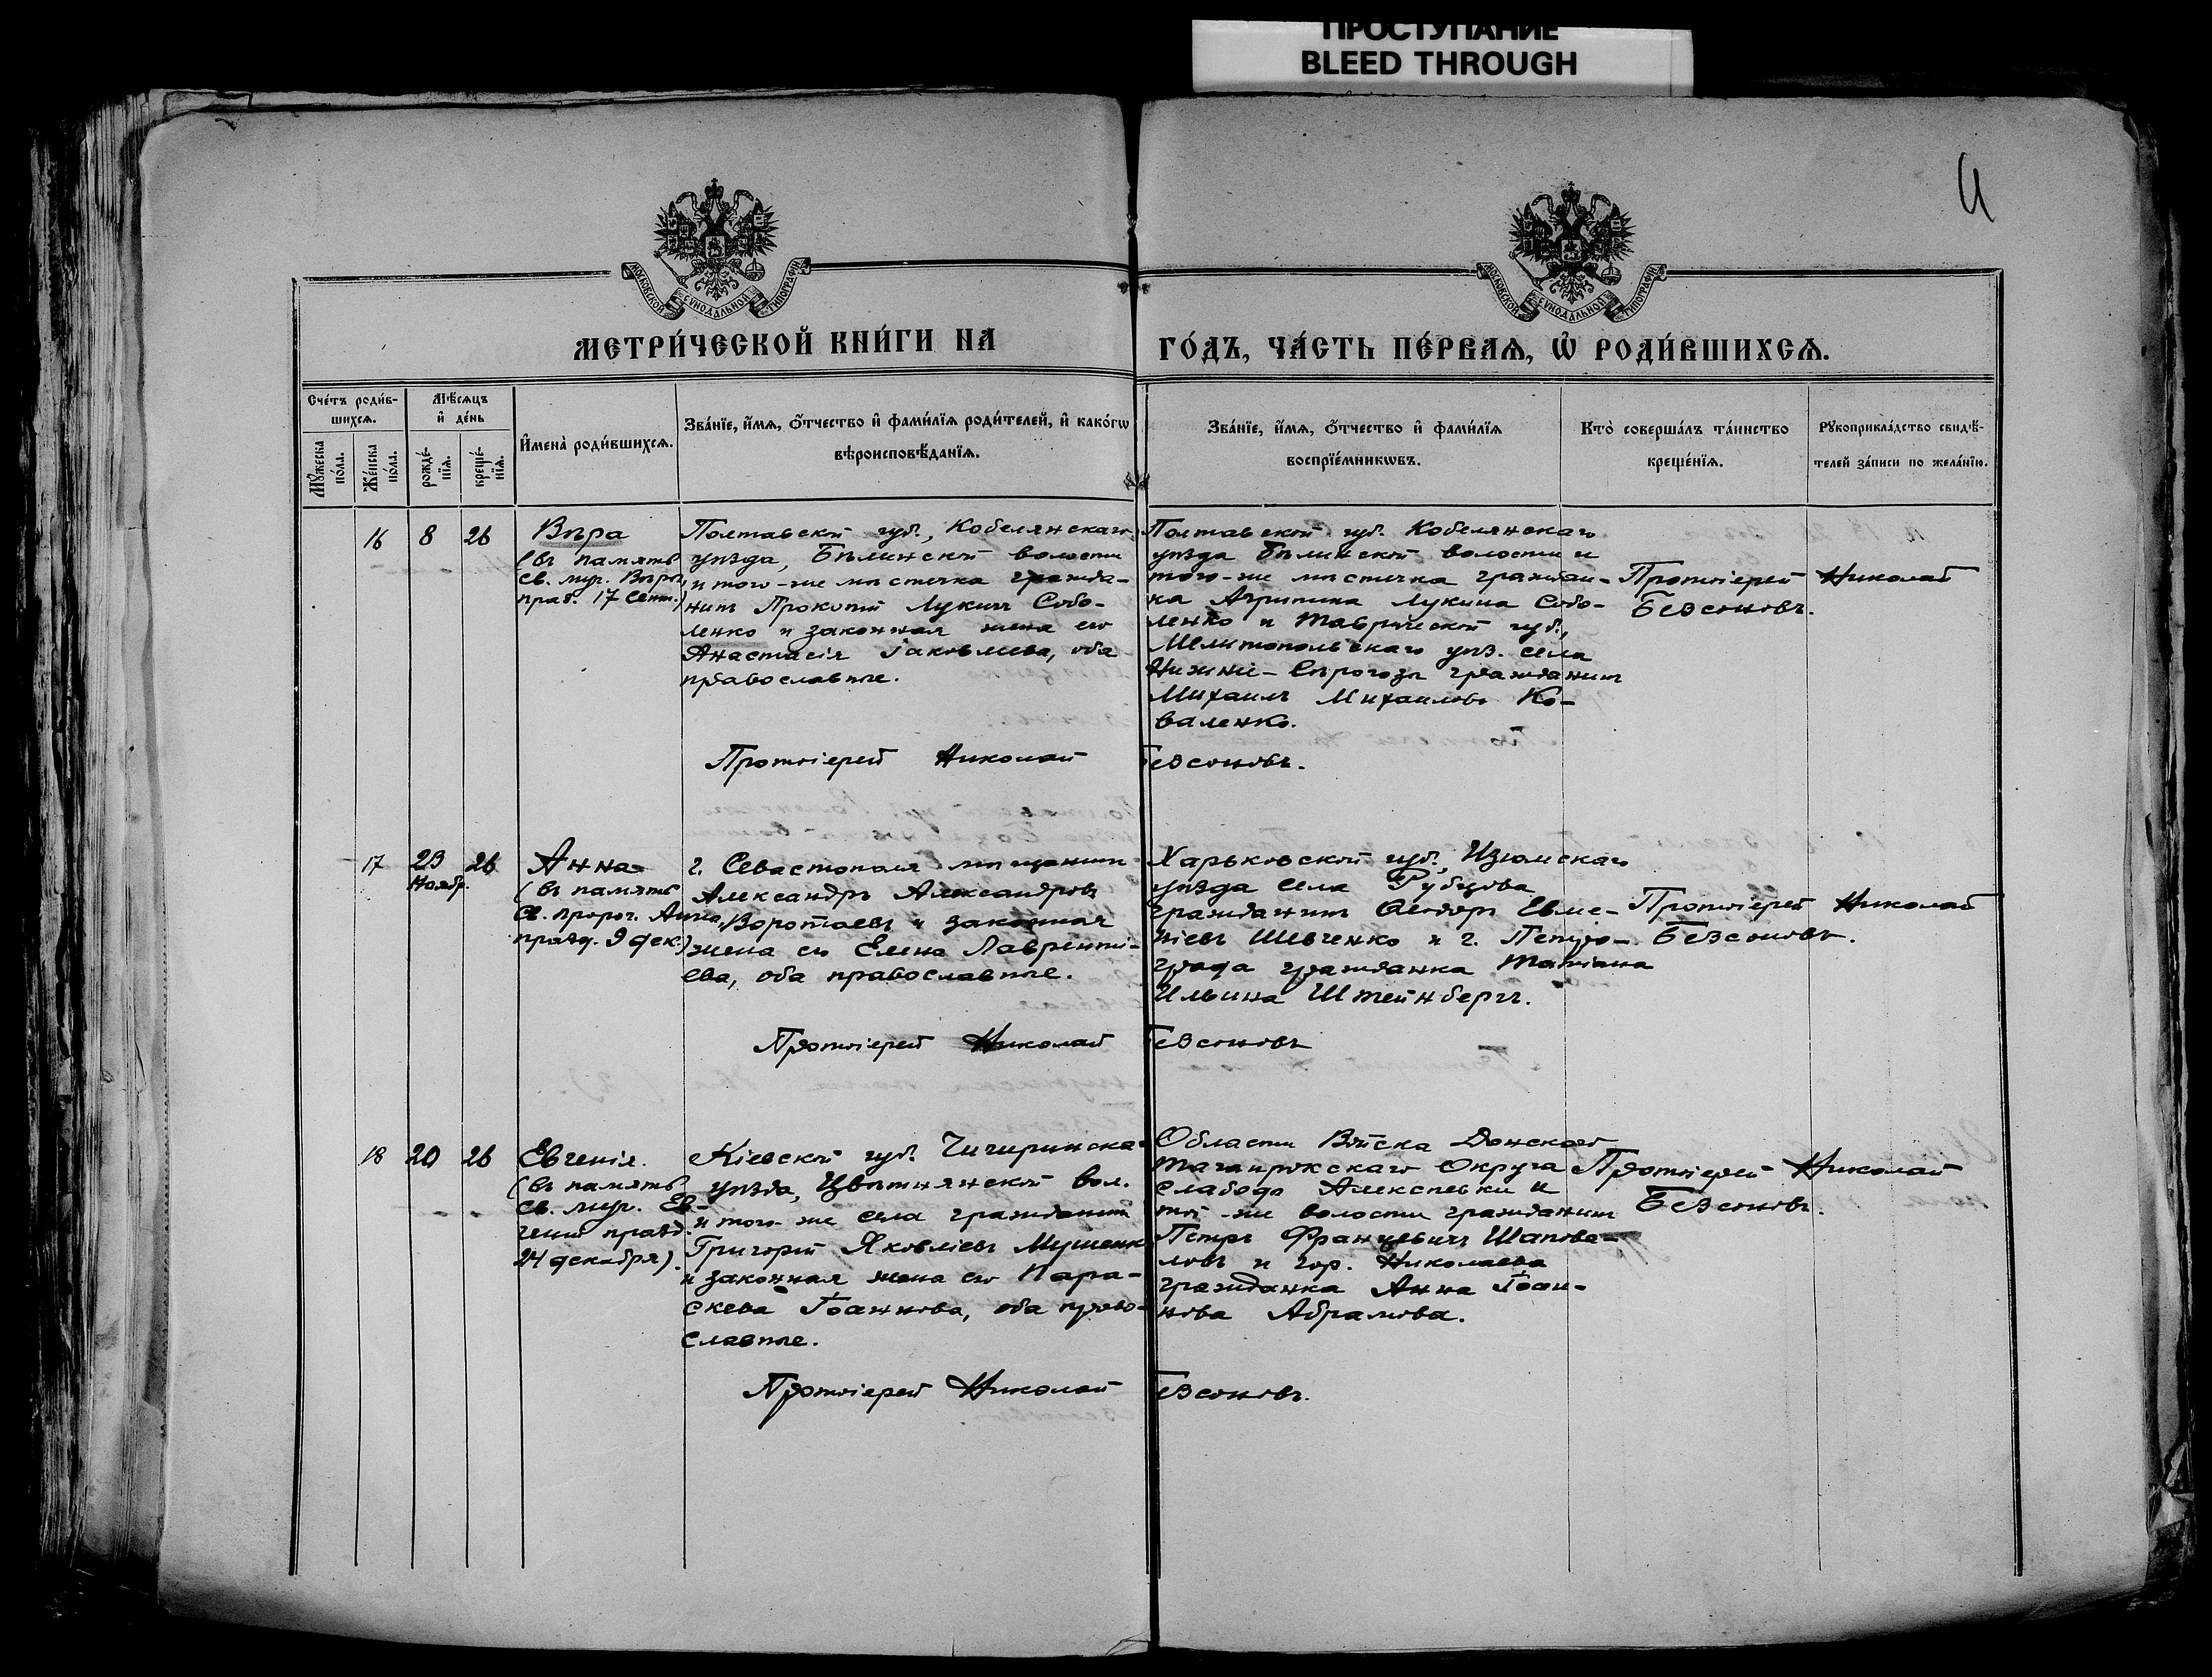 ПРОСТУПАНИЕ
BLEED THROUGH
МОСКОВСКОЙ СѴНОДАЛЬНОЙ ТИПОГРАФІИ
МОСКОВСКОЙ СѴНОДАЛЬНОЙ ТИПОГРАФІИ
МЕТРИ́ЧЕСКОЙ КНИ́ГИ НА
ГО́ДЪ, ЧА́СТЬ ПЕ́РВАѦ, Ѡ РОДИ́ВШИХСѦ.
Сче́тъ роди́в-
шихсѧ.
Мꙋжеска по́ла.
Же́нска по́ла.
Мѣ́сѧцъ
и҆ де́нь
рожде́-
нїѧ.
креще́-
нїѧ.
И҆мена̀ роди́вшихсѧ.
Зва́нїе, и҆́мѧ, ѻ҆́тчество и҆ фами́лїѧ роди́телей, и҆ како́гѡ
вѣроисповѣ́данїѧ.
Зва́нїе, и҆́мѧ, ѻ҆́тчество и҆ фами́лїѧ
воспрїе́мникѡвъ.
Кто̀ соверша́лъ та́инство
креще́нїѧ.
Рꙋкоприкла́дство свидѣ́-
телей за́писи по жела́нїю.
16 8 26
Вѣра
(въ память
св. муч. Вѣры,
празд. 17 Сент.)
Полтавской губ., Кобелякскаго
уѣзда, Бѣлинской волости
и того-же мѣстечка гражда-
нинъ Прокопій Лукинъ Собо-
ленко и законная жена его
Анастасія Іаковлева, оба
православные.
Полтавской губ. Кобелякскаго
уѣзда Бѣлинской волости и
того-же мѣстечка граждан-
ка Агрипина Лукина Собо-
ленко и Таврической губ.,
Мелитопольскаго уѣз. села
Нижніе-Сѣрогозы гражданинъ
Михаилъ Михаиловъ Ко-
валенко.
Протоіерей Николай
Безсоновъ.
Протоіерей Николай Безсоновъ.
17 23 26
Ноябр.
Анна
(въ память
Св. Пророч. Анны,
празд. 9 дек.)
г. Севастополя мѣщанинъ
Александръ Александровъ
Воротаевъ и законная
жена его Елена Лаврентi-
ева, оба православные.
Харьковской губ., Изюмскаго
уѣзда села Рубцова
гражданинъ Ѳеодоръ Евме-
ніевъ Шевченко и г. Петро-
града гражданка Татіана
Ильина Штейнбергъ.
Протоіерей Николай
Безсоновъ.
Протоіерей Николай Безсоновъ
18 20 26
Евгенія.
(въ память
св. муч. Ев-
геніи празд.
24 декабря).
Кіевской губ. Чигиринска-
уѣзда, Цвѣтнянской вол.
и того-же села гражданинъ
Григорій Яковлевъ Мушенко
и законная жена его Пара-
скева Іоаннова, оба право-
славные.
Области Войска Донскаго
Таганрокскаго Округа
слабоды Алексѣевки и
той-же волости гражданинъ
Петръ Францевичъ Шапова-
ловъ и гор. Николаева
гражданка Анна Іоан-
нова Абрамова.
Протоіерей Николай
Безсоновъ.
Протоіерей Николай Безсоновъ.